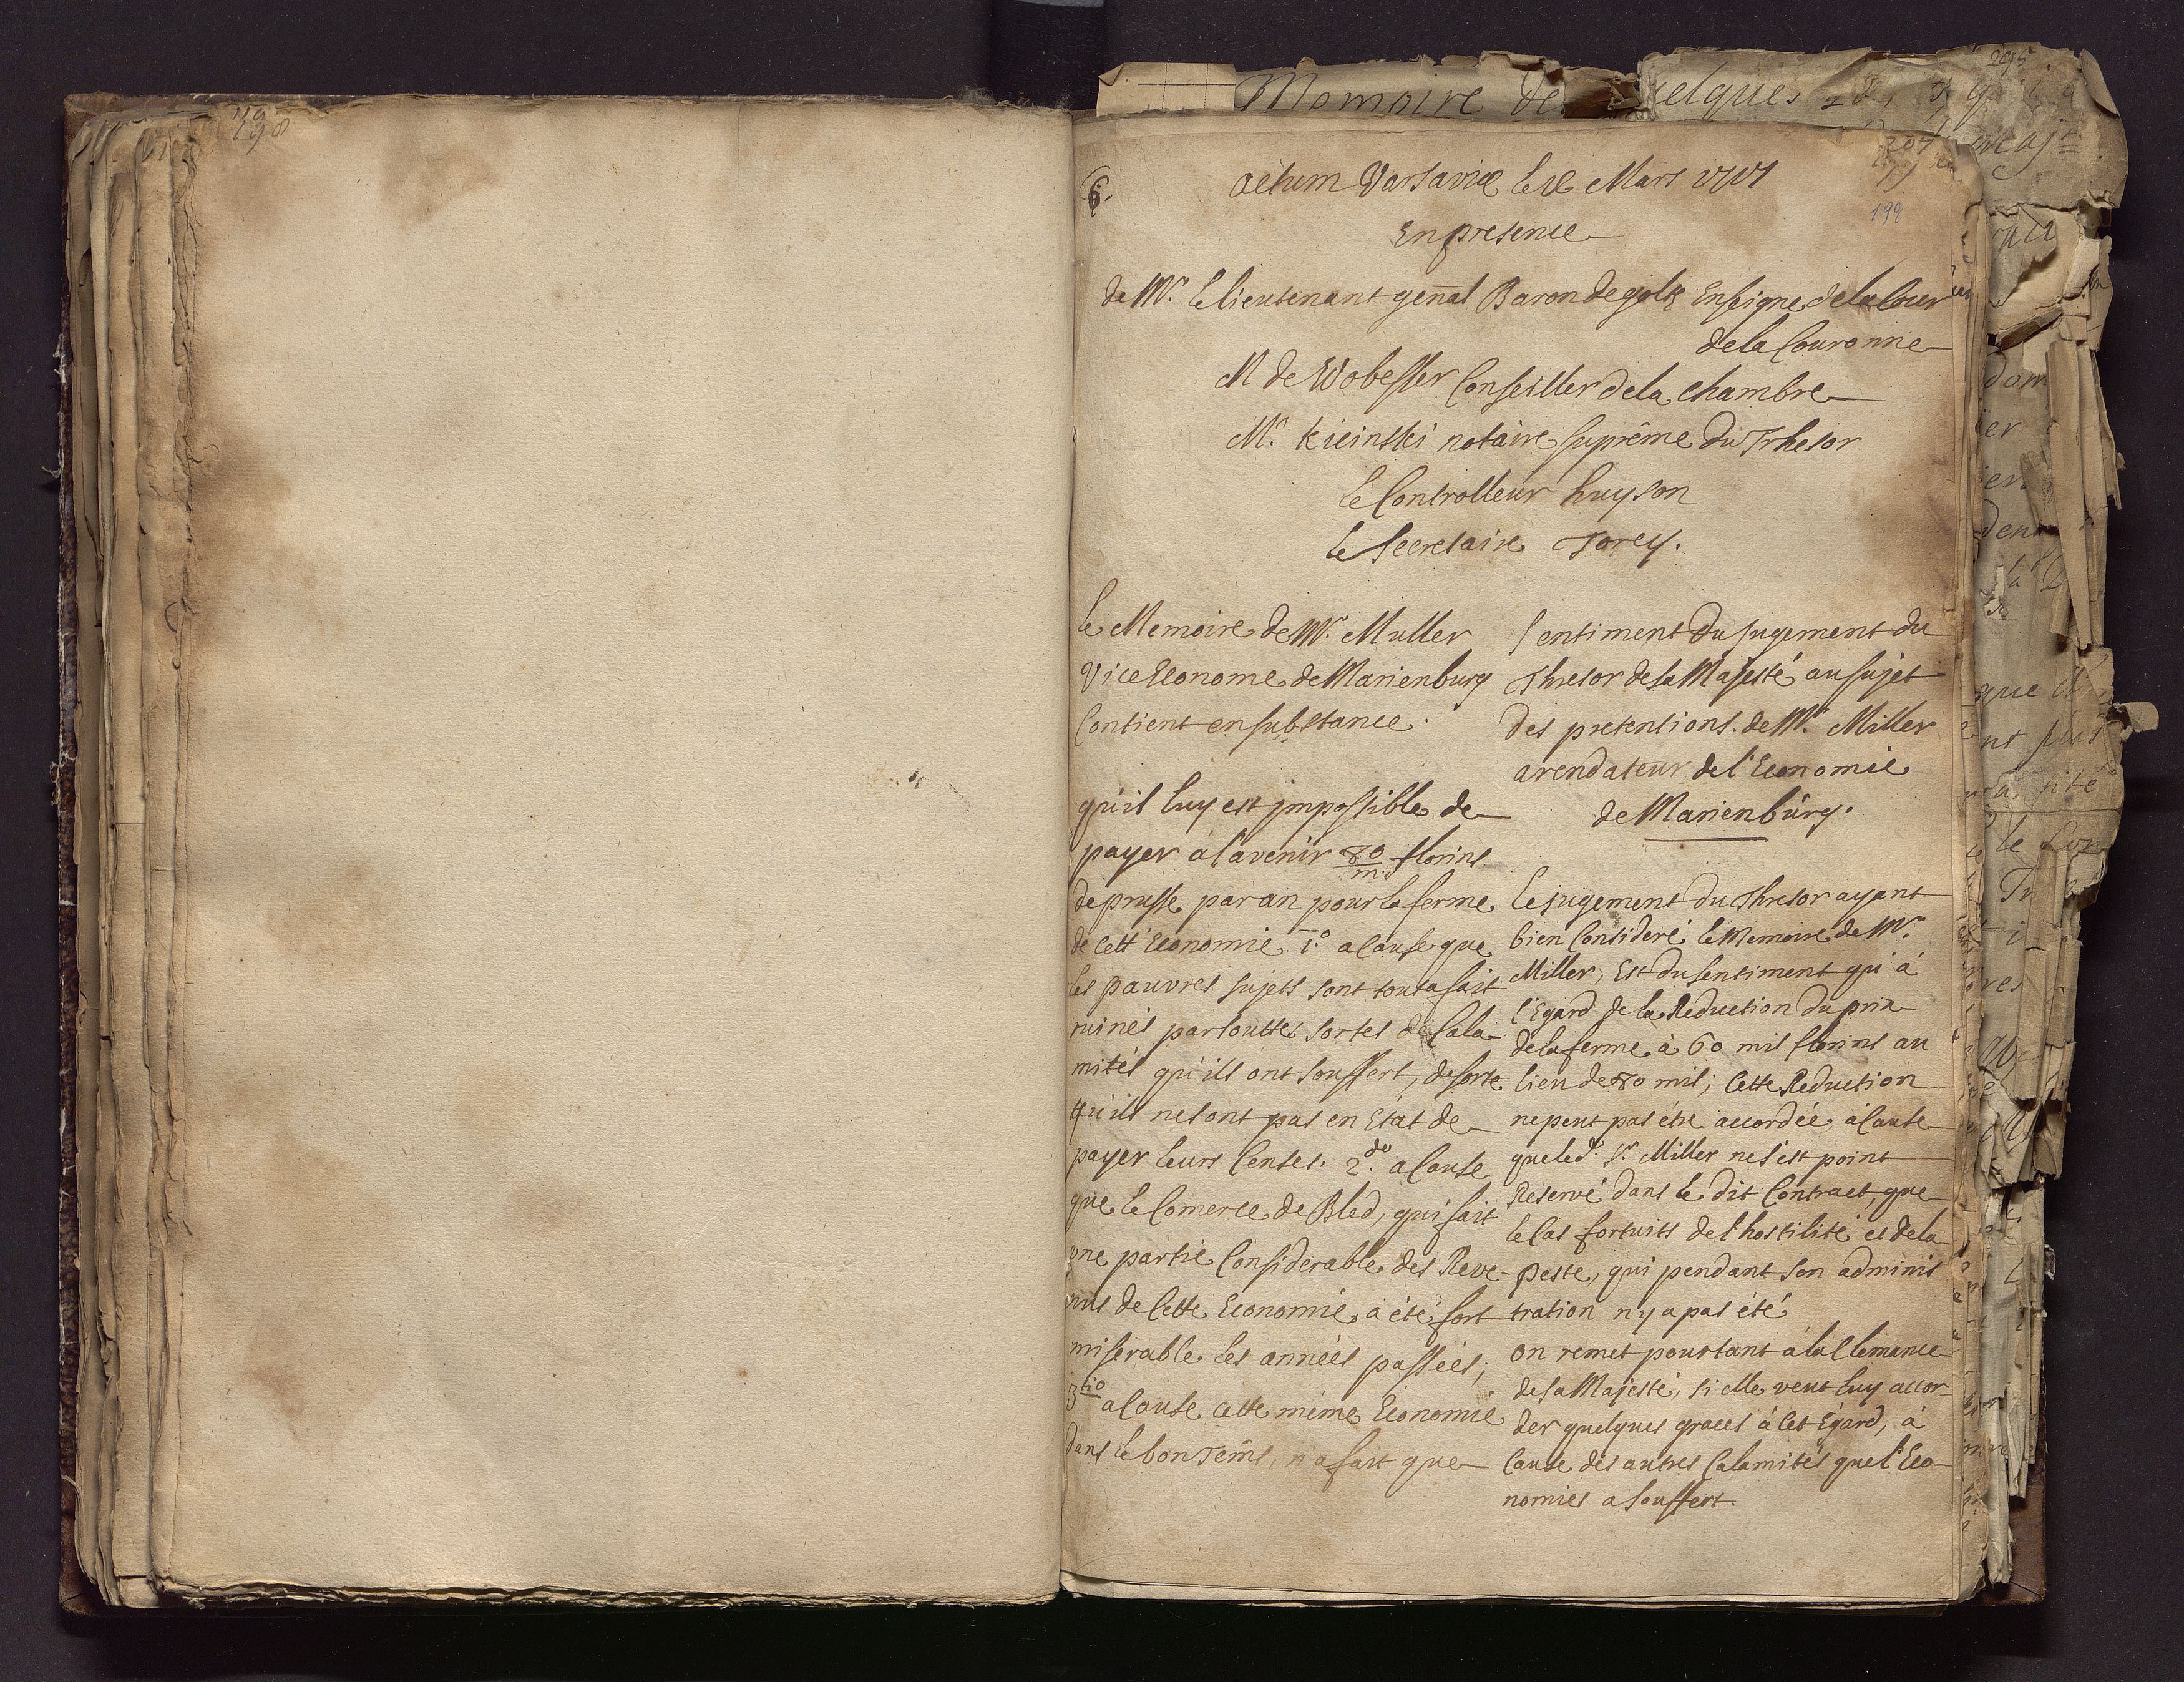 198
6.
actum Varsaviæ le 18 Mars 1717
En presence
de Mr. le lieutenant genñal Baron de goltz Enseigne de la Cour
de la Couronne
M de Wobesser Conseiller de la Chambre
Mr. Kicinski notaire suprême du Trhesor
le Controlleur huyson
le Secretaire Torey.
199
le Memoire de Mr. Muller
Vice Econome de Marienburg
Contient en substance.
qu'il luy est jmpossible de
payer a l'avenir 80/m. florins
de prusse par an pour la ferme
de cett Economie 1.o a cause que
les pauvres sujets sont tout a fait
ruinés par touttes sortes de Cala-
mités qu'ils ont souffert, de sorte
qu'ils ne sont pas en Etat de
payer leurs Censes. 2.do a Cause
que le Comerce de Bled, qui fait
une partie Considerable des Reve-
nus de Cette Economie, a été fort
miserable les années passées;
3tio a Cause cette même Economie
dans le bon Tem̃s, n'a fait que
Sentiment du jugement du
Thresor de sa Majesté au sujet
des pretentions de Mr. Miller
arendateur de l'Economie
de Marienburg.
le jugement du Thresor ayant
bien Consideré le Memoire de Mr.
Miller, Est du sentiment qu'à
l'Egard de la Reduction du prix
de la ferme à 60 mil florins au
lieu de 80 mil; Cette Reduction
ne peut pas être accordée, à Cause
que led. Sr. Miller ne s'est point
Reservé dans le dit Contract, que
le Cas fortuits de l'hostilité et de la
peste, qui pendant son adminis
tration n'y a pas été
on remet pourtant à la Clemance
de sa Majesté, si elle veut luy accor
der quelques graces à Cet Egard, à
Cause des autres Calamités que l'Eco-
nomies a souffert.
Memoire de
elques
295